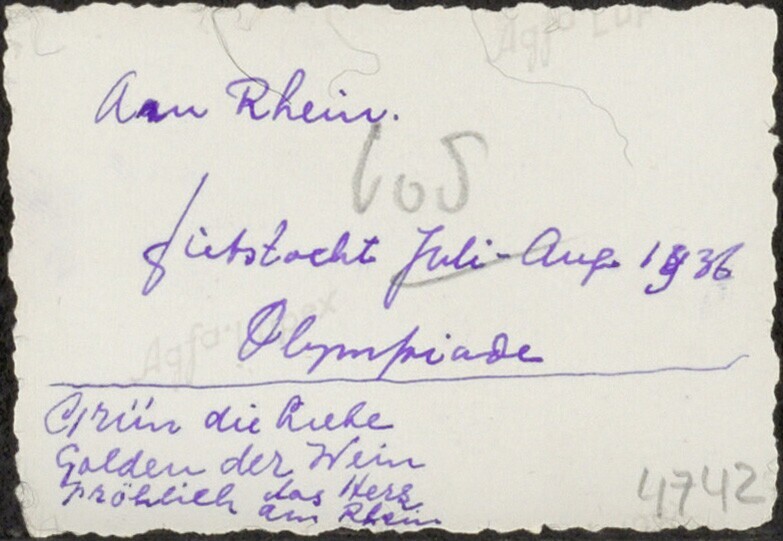 Agfa Lup
Aan Rhein.
fietstocht Juli-Aug. 1936
Agfa-Lupex
Olympiade
Grün die Riebe
Golden der Wein
Fröhlich das Herz
am Rhein
4742